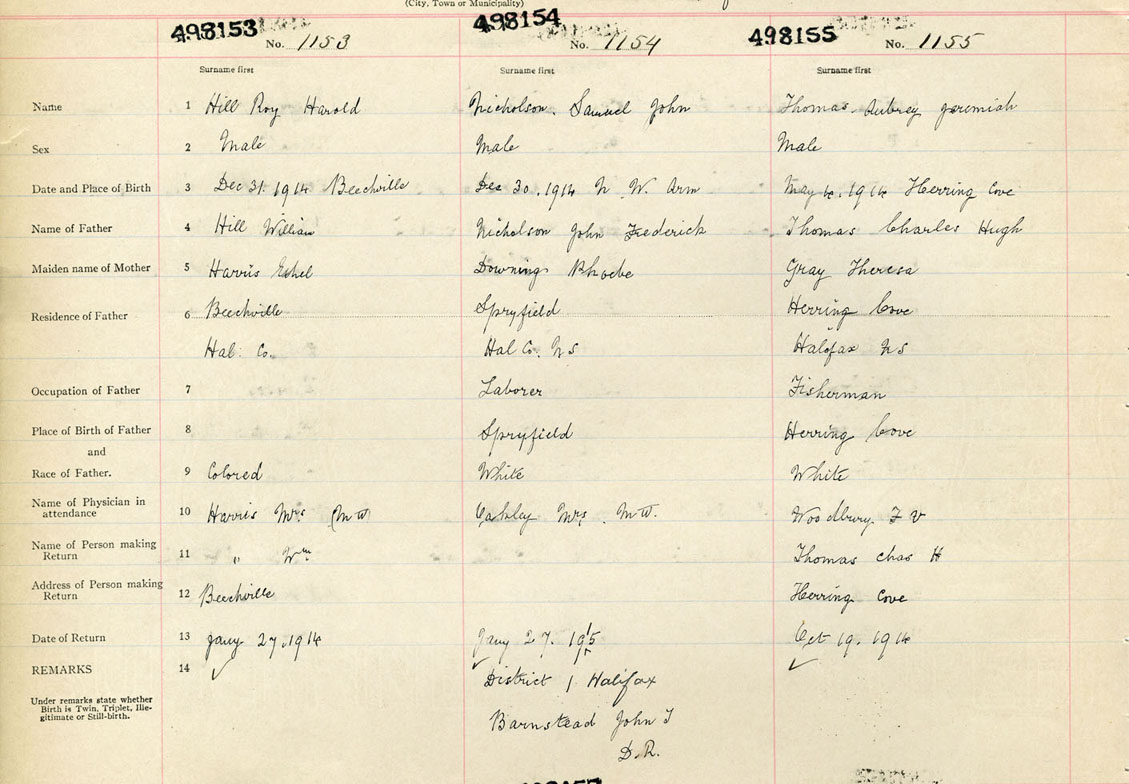 (City, Town or Municipality)
498153 498154 498155
No. 1153 No. 1154 No. 1155
Surname first Surname first Surname first
Name 1 Hill Roy Harold Nicholson. Samuel John Thomas. Aubrey Jeremiah
Sex 2 Male Male Male
Date and Place of Birth 3 Dec 31. 1914 Beechville Dec 30. 1914 N. W. Arm May 4. 1914 Herring Cove
Name of Father 4 Hill William Nicholson John Frederick Thomas Charles Hugh
Maiden name of Mother 5 Harris Ethel Downing Phoebe Gray Theresa
Residence of Father 6 Beechville Spryfield Herring Cove
Hal. Co. Hal Co. N S Halifax N S
Occupation of Father 7 Laborer Fisherman
Place of Birth of Father 8 Spryfield Herring Cove
and
Race of Father. 9 Colored White White
Name of Physician in
attendance 10 Harris Mrs (M W) Oakley Mrs. M W. Woodbury. F V
Name of Person making
Return 11 " Wm Thomas Chas H
Address of Person making
Return 12 Beechville Herring Cove
Date of Return 13 Jany 27. 1914 Jany 27. 1915 Oct 19. 1914
REMARKS 14 ✓ ✓ District 1 Halifax ✓
Under remarks state whether
Birth is Twin, Triplet, Ille-
gitimate or Still-birth.
Barnstead John T
D. R.